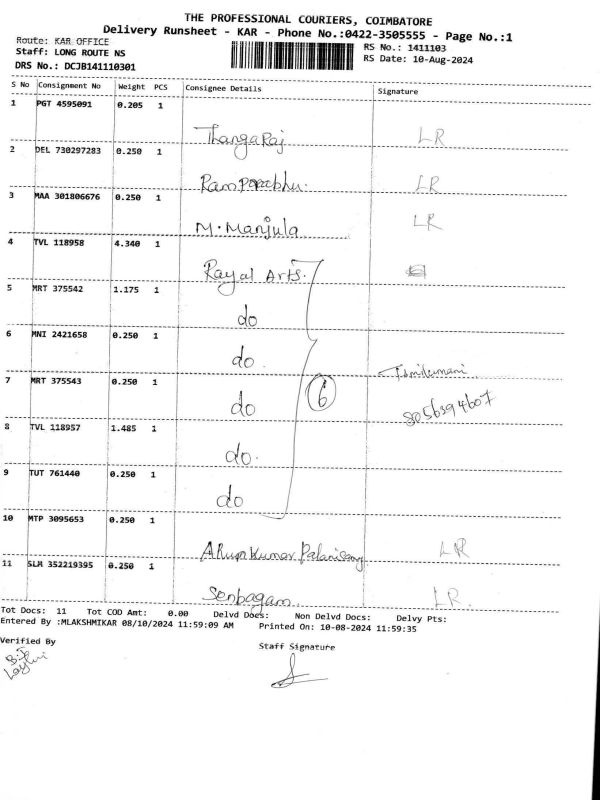 THE PROFESSIONAL COURIERS, COIMBATORE
Delivery Runsheet - KAR - Phone No.:0422-3505555 - Page No.:1
Route: KAR OFFICE
Staff: LONG ROUTE NS
DRS No.: DCJB141110301
RS No.: 1411103
RS Date: 10-Aug-2024
S No Consignment No Weight PCS Consignee Details Signature
1 PGT 4595091 0.205 1
ThangaRaj LR
2 DEL 730297283 0.250 1
Ram Prabhu. LR
3 MAA 301806676 0.250 1
M. Manjula LR
4 TVL 118958 4.340 1
Rayal Arts.
5 MRT 375542 1.175 1
do
6 MNI 2421658 0.250 1
do.
7 MRT 375543 0.250 1
do
6
Tamilmani
8056394607
8 TVL 118957 1.485 1
do.
9 TUT 761440 0.250 1
do
10 MTP 3095653 0.250 1
ARun Kumar Palanisamy LR
11 SLM 352219395 0.250 1
Senbagam. LR.
Tot Docs: 11 Tot COD Amt: 0.00 Delvd Docs: Non Delvd Docs: Delvy Pts:
Entered By :MLAKSHMIKAR 08/10/2024 11:59:09 AM Printed On: 10-08-2024 11:59:35
Verified By
Staff Signature